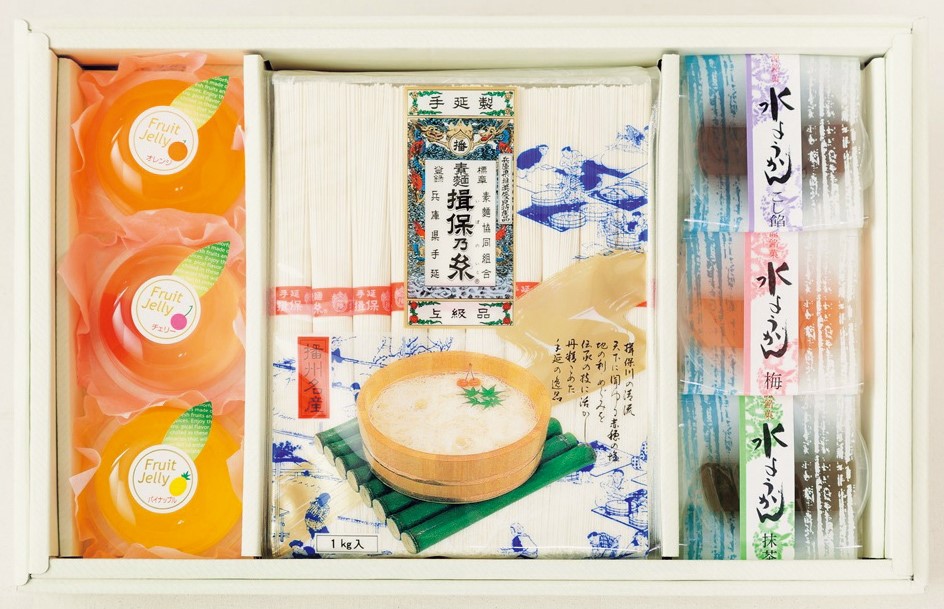 Fruit
Jelly
オレンジ
Fruit
Jelly
チェリー
Fruit
Jelly
パイナップル
手延製
播
標章
素麺協同組合
素麺
揖保乃糸
登録
兵庫県手延
上級品
手延
揖保
手延
揖保
播州名産
揖保川の清流
天下に聞ゆる赤穂の塩
地の利めぐみを
伝承の技に活かし
丹精こめた
手延の逸品
1kg入
水ようかん
こし餡
水ようかん
梅
水ようかん
抹茶